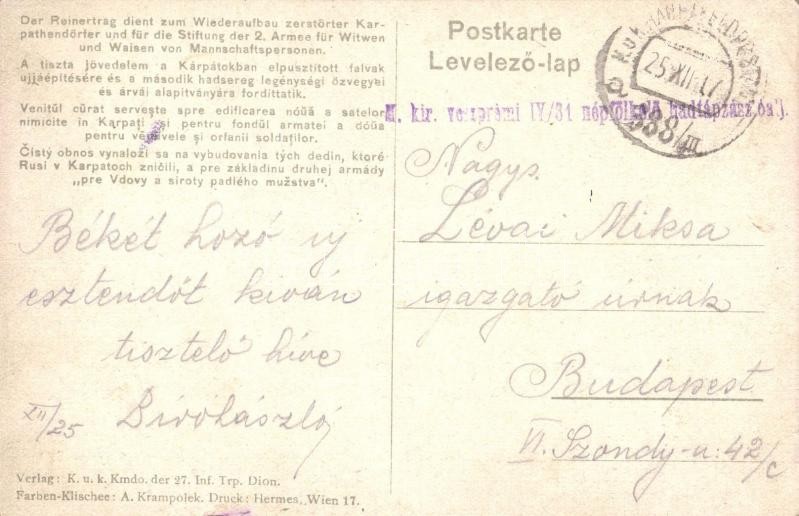 Der Reinertrag dient zum Wiederaufbau zerstörter Kar-
pathendörfer und für die Stiftung der 2. Armee für Witwen
und Waisen von Mannschaftspersonen.
A tiszta jövedelem a Kárpátokban elpusztított falvak
ujjáépitésére és a második hadsereg legénységi özvegyei
és árvái alapitványára fordittatik.
Venitŭl cŭrat serveşte spre edificarea nóŭă a satelor
nimicite in Karpaţi şi pentru fondŭl armatei a dóŭa
pentru văduvele şi orfanii soldaţilor.
Čistý obnos vynaloži sa na vybudovania tých dedin, ktoré
Rusi v Karpatoch zničili, a pre základinu druhej armády
„pre Vdovy a siroty padlého mužstva".
Postkarte
Levelező-lap
25 XII 17
388/III
M. kir. veszprémi IV/31 népfölkelő hadtápzászlóalj.
Nagys.
Lévai Miksa
igazgató úrnak
Budapest
VI. Szondy-u. 42/c
Békét hozó uj
esztendőt kiván
tisztelő hive
XII/25
Verlag: K. u. k. Kmdo. der 27. Inf. Trp. Dion.
Farben-Klischee: A. Krampolek. Druck: Hermes, Wien 17.